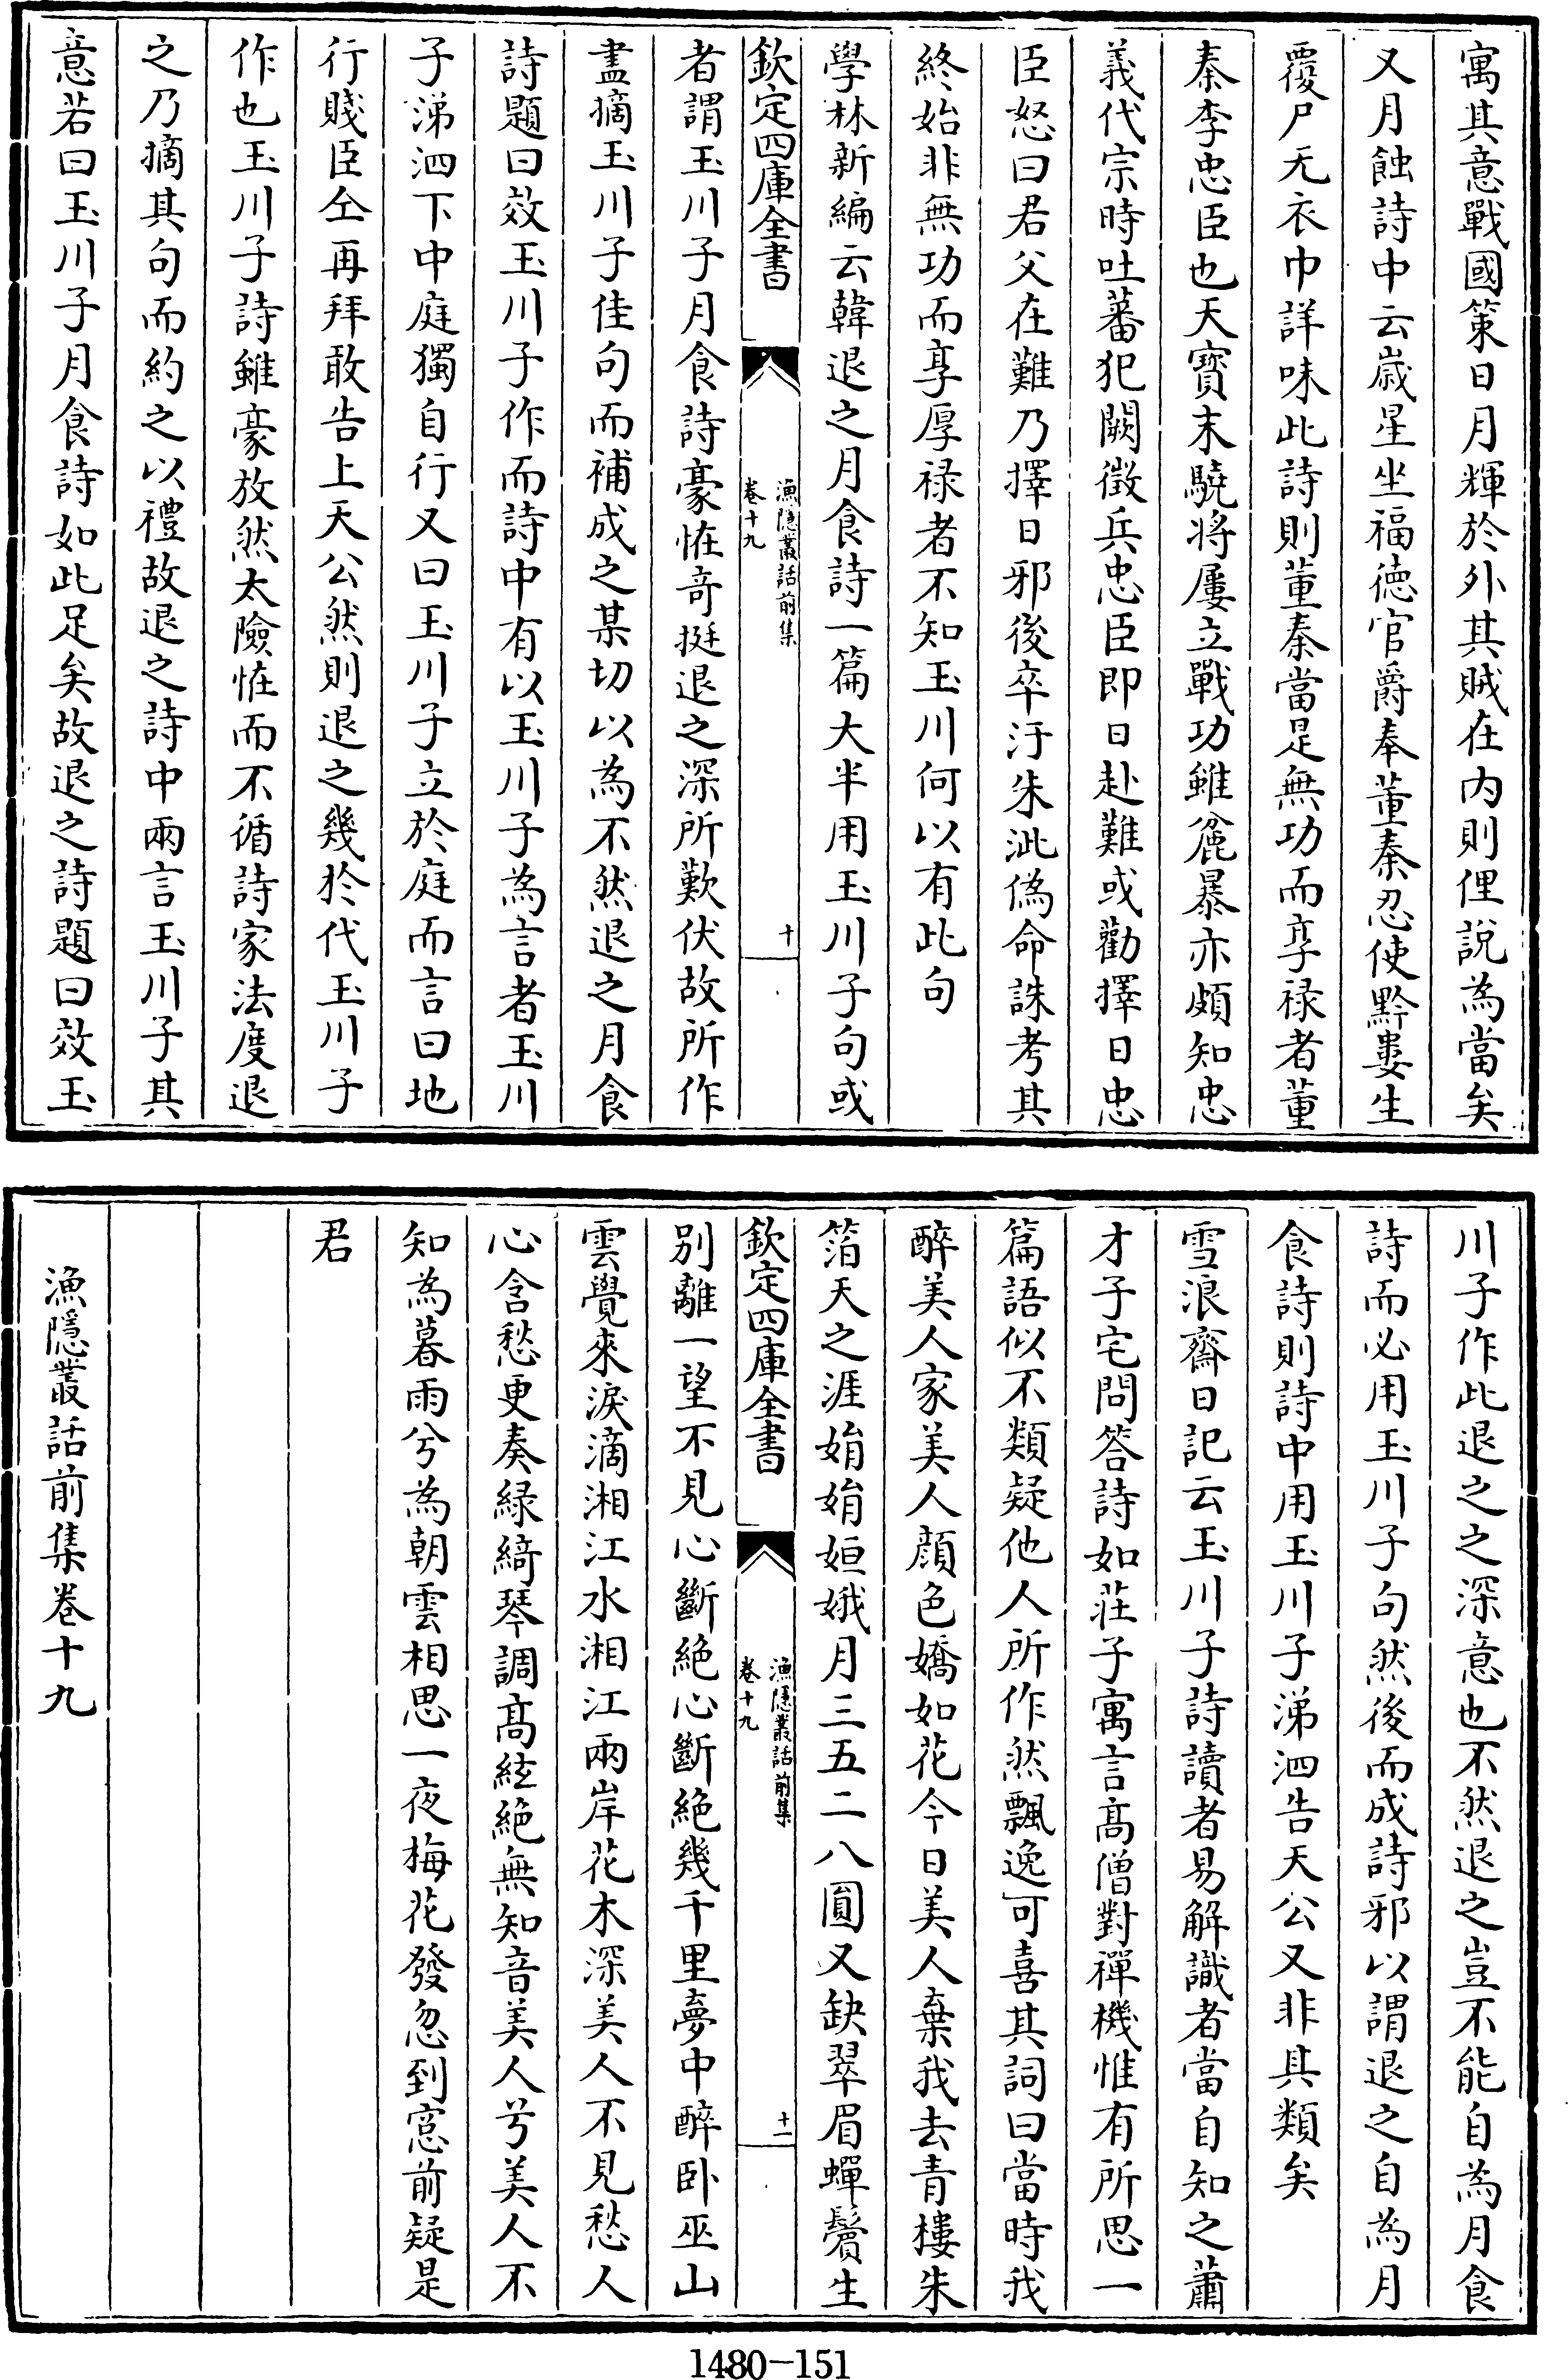 寓其意戰國策日月輝於外其賊在内則俚說為當矣
又月蝕詩中云嵗星坐福徳官爵奉董秦忍使黔婁生
覆尸无衣巾詳味此詩則董秦當是無功而享禄者董
秦李忠臣也天寳末驍将屢立戰功雖麄暴亦頗知忠
義代宗時吐蕃犯闕徴兵忠臣即日赴難或勸擇日忠
臣怒曰君父在難乃擇日邪後卒汙朱泚偽命誅考其
終始非無功而享厚禄者不知玉川何以有此句
學林新編云韓退之月食詩一篇大半用玉川子句或
欽定四庫全書
漁隠叢話前集
卷十九
十
者謂玉川子月食詩豪恠竒挺退之深所歎伏故所作
盡摘玉川子佳句而補成之某切以為不然退之月食
詩題曰效玉川子作而詩中有以玉川子為言者玉川
子涕泗下中庭獨自行又曰玉川子立於庭而言曰地
行賤臣仝再拜敢告上天公然則退之幾於代玉川子
作也玉川子詩雖豪放然太險恠而不循詩家法度退
之乃摘其句而約之以禮故退之詩中兩言玉川子其
意若曰玉川子月食詩如此足矣故退之詩題曰效玉
川子作此退之之深意也不然退之豈不能自為月食
詩而必用玉川子句然後而成詩邪以謂退之自為月
食詩則詩中用玉川子涕泗告天公又非其類矣
雪浪齋日記云玉川子詩讀者易解識者當自知之蕭
才子宅問答詩如莊子寓言髙僧對禪機惟有所思一
篇語似不類疑他人所作然飄逸可喜其詞曰當時我
醉美人家美人顔色嬌如花今日美人棄我去青樓朱
箔天之涯娟娟姮娥月三五二八圓又缺翠眉蟬鬢生
欽定四庫全書
漁隱叢話前集
卷十九
十一
别離一望不見心斷絶心斷絶幾千里夢中醉卧巫山
雲覺來淚滴湘江水湘江兩岸花木深美人不見愁人
心含愁更奏緑綺琴調髙絃絶無知音美人兮美人不
知為暮雨兮為朝雲相思一夜梅花發忽到窓前疑是
君
漁隱叢話前集卷十九
1480-151